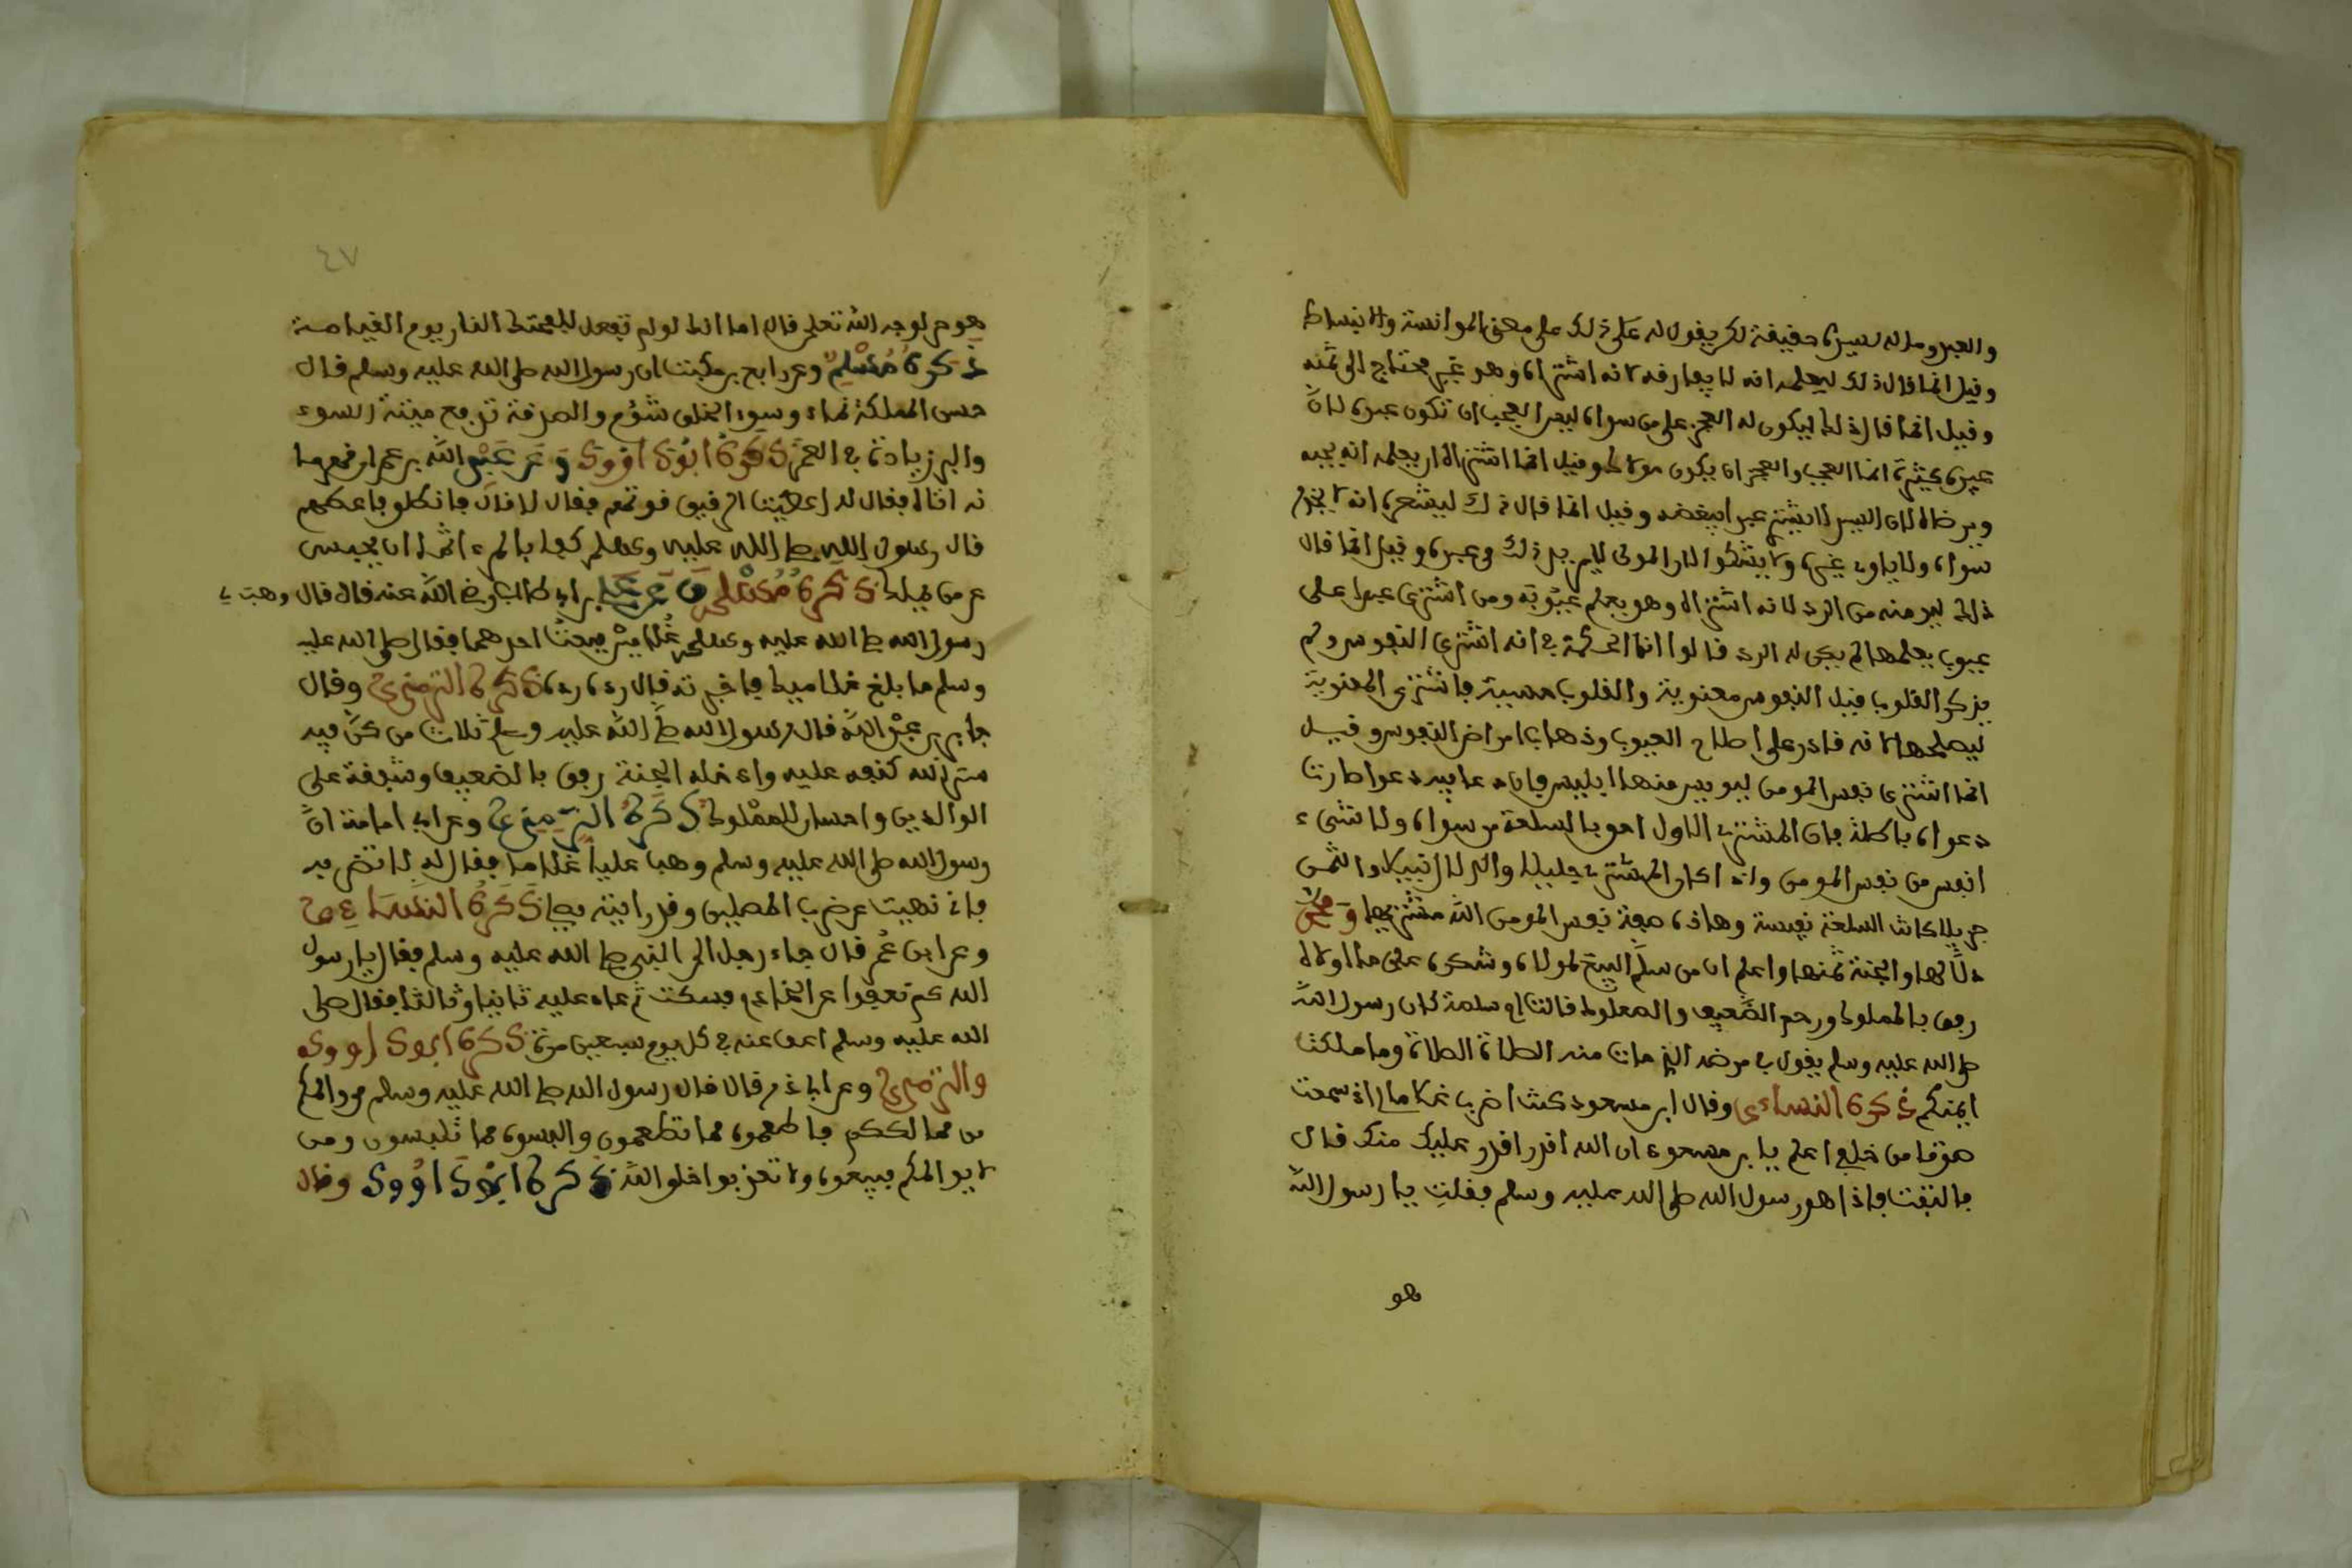 والعبد وماله لسيده حقيقة لكن يقول له على ذلك على معنى الموانسة والانبساط
وقيل انما قال ذلك ليعلمه انه لا يفارقه لانه اشتراه وهو غير محتاج الى ثمنه
وقيل انما قال ذلك ليكون له العجز على من سواه ليس العجب ان تكون عبده لان
عبيده كثيرة انما العجب والعجز ان يكون مولاك وقيل انما اشتراه لان يعلمه انه يحبه
ويرضاه لان السيد لا يشتر عبدا يبغضه وقيل انما قال ذلك ليشعره انه لا يخدم
سواه ولا ياوي غيره ولا يشكوا الا الى المولى وقيل انما قال
ذلك ليومنه من الرد لانه اشتراه وهو يعلم عيوبه ومن اشترى عبدا على
عيوب يعلمها لم يكن له الرد قالوا انما الحكمة في انه اشترى النفوس ولم
يذكر القلوب قيل النفوس معنوية والقلوب حسيبة فاشترى المعنوية
ليصلحها لانه قادر على اصلاح العيوب وذهاب امراض النفوس وقيل
انما اشترى نفس المومن ليويس منها ابليس فان دعا فيه دعوا صارت
دعواه باطلة فان المشتري الاول احق بالسلعة من سواه ولا شيء
انفس من نفس المومن واذا كان المشتري جليلا والدلال نبيلا والثمن
جزيلا كانت السلعة نفيسة وهاذه صفة نفس المومن الله مشتريها ومحمد
دلالها والجنة ثمنها واعلم ان من سلم البيع لمولاه وشكره على ما اولاه
رفق بالمملوك ورحم الضعيف والصعلوك قالت ام سلمة كان رسول الله
صلى الله عليه وسلم يقول في مرضه الذي مات منه الصلاة الصلاة وما ملكت
ايمنكم ذكره النساءي وقال ابن مسعود كنت اضرب غلاما لي اذ سمعت
صوتا من خلفي اعلم يابن مسعود ان الله اقدر اقدر عليك منك قال
فالتفت فاذا هو رسول الله صلى الله عليه وسلم فقلت يا رسول الله
هو
٤٧
هو حر لوجه الله تعلى قال اما انك لو لم تفعل للفحتك النار يوم القيامة
ذكره مسلم وعن رابع بن مكيث ان رسول الله صلى الله عليه وسلم قال
حسن الملكة نماء وسوء الخلق شؤم والصدقة تدفع ميتة السوء
والبر زيادة في العمر ذكره ابو داوود وعن عبد الله بن عمر
انه اتاه فقال له اعطيت الرقيق قوتهم فقال لا قال فانطلق فاعطهم
قال رسول الله صلى الله عليه وسلم كفا بالمرء اثما ان يحبس
عن من يملك ذكره مسلم وعن علي بن ابي طالب رضي الله عنه قال قال وهب لي
رسول الله صلى الله عليه وسلم غلامين فبعت احدهما فقال صلى الله عليه
وسلم ما بلغ غلاميك فاخبرته فقال رده رده ذكره الترمذي وقال
جابر بن عبد الله قال رسول الله صلى الله عليه وسلم ثلاث من كن فيه
ستر الله كنفه عليه وادخله الجنة رفق بالضعيف وشفقة على
الوالدين واحسان للمملوك ذكره الترمذي وعن ابي امامة ان
رسول الله صلى الله عليه وسلم وهب عليا غلاما فقال له لا تضربه
فاني نهيت عن ضرب المصلين وقد رايته يصل ذكره النساءي
وعن ابن عمر قال جاء رجل الى النبي صلى الله عليه وسلم فقال يا رسول
الله كم تعفوا عن الخادم فسكت ثم عاد عليه ثانيا وثالثا فقال صلى
الله عليه وسلم اعف عنه في كل يوم سبعين مرة ذكره ابو داوود
والترمذي وعن ابا ذر قال قال رسول الله صلى الله عليه وسلم من والمكم
من ممالككم فاطعموه مما تطعمون والبسوه مما تلبسون ومن
لا يوالمكم فبيعوه ولا تعذبوا خلق الله ذكره ابو داوود وقال